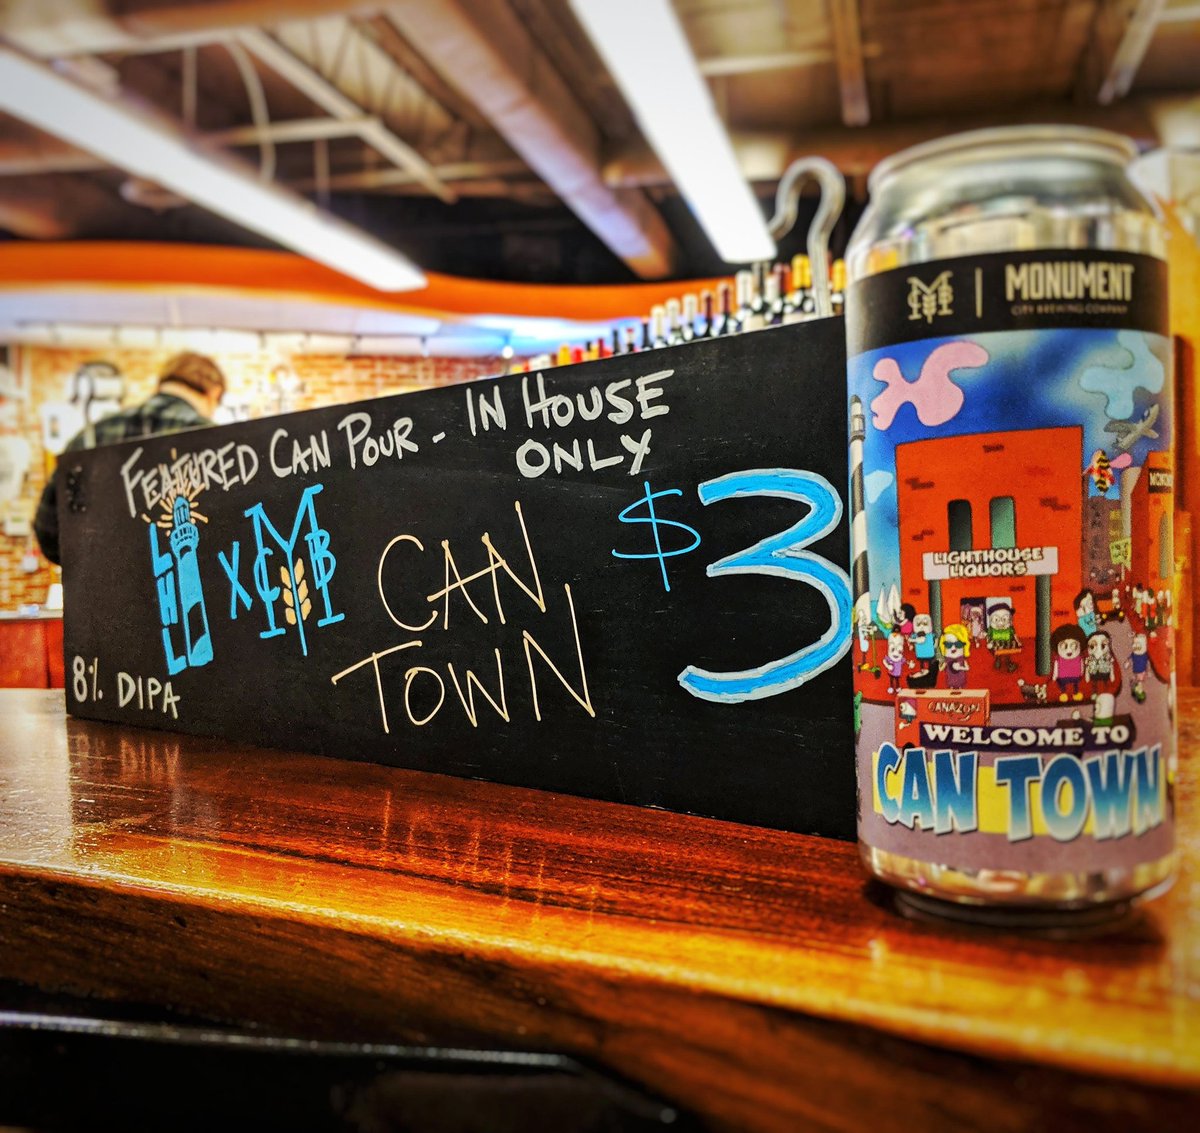 FEATURED CAN POUR - IN HOUSE
ONLY
LHL X MCBC CAN
TOWN
$3
8% DIPA
MONUMENT
CITY BREWING COMPANY
LIGHTHOUSE
LIQUORS
CANAZON
WELCOME TO
CAN TOWN